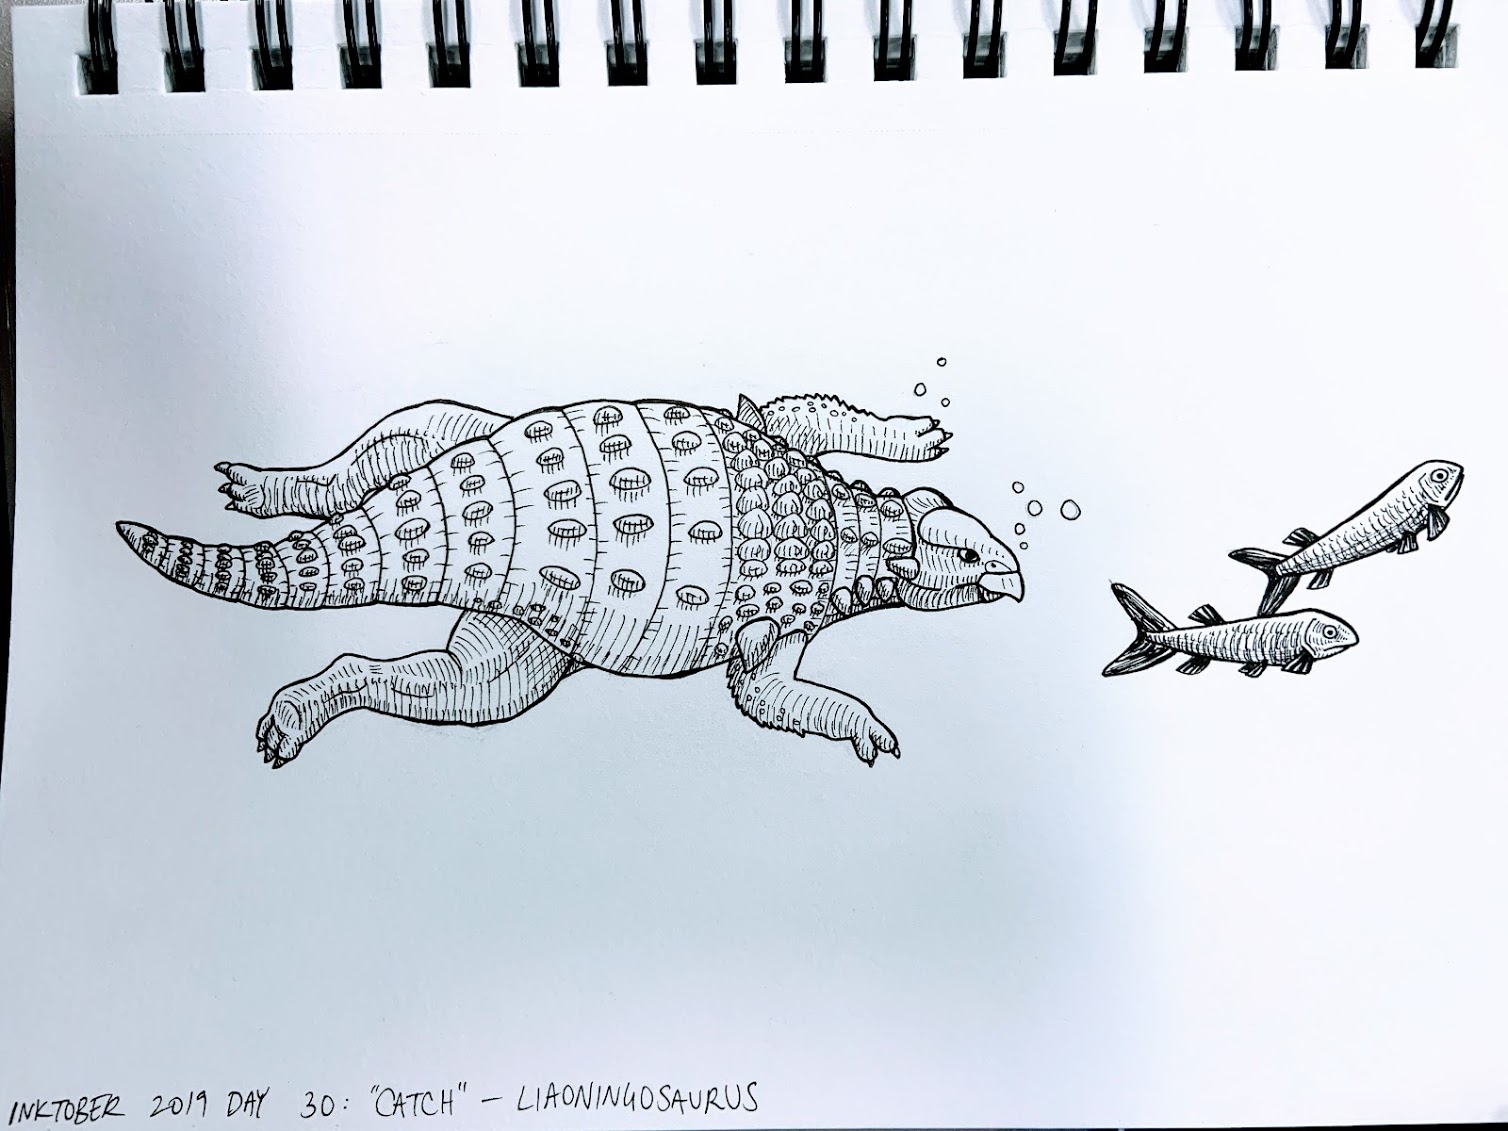 INKTOBER 2019 DAY 30: "CATCH" – LIAONINGOSAURUS